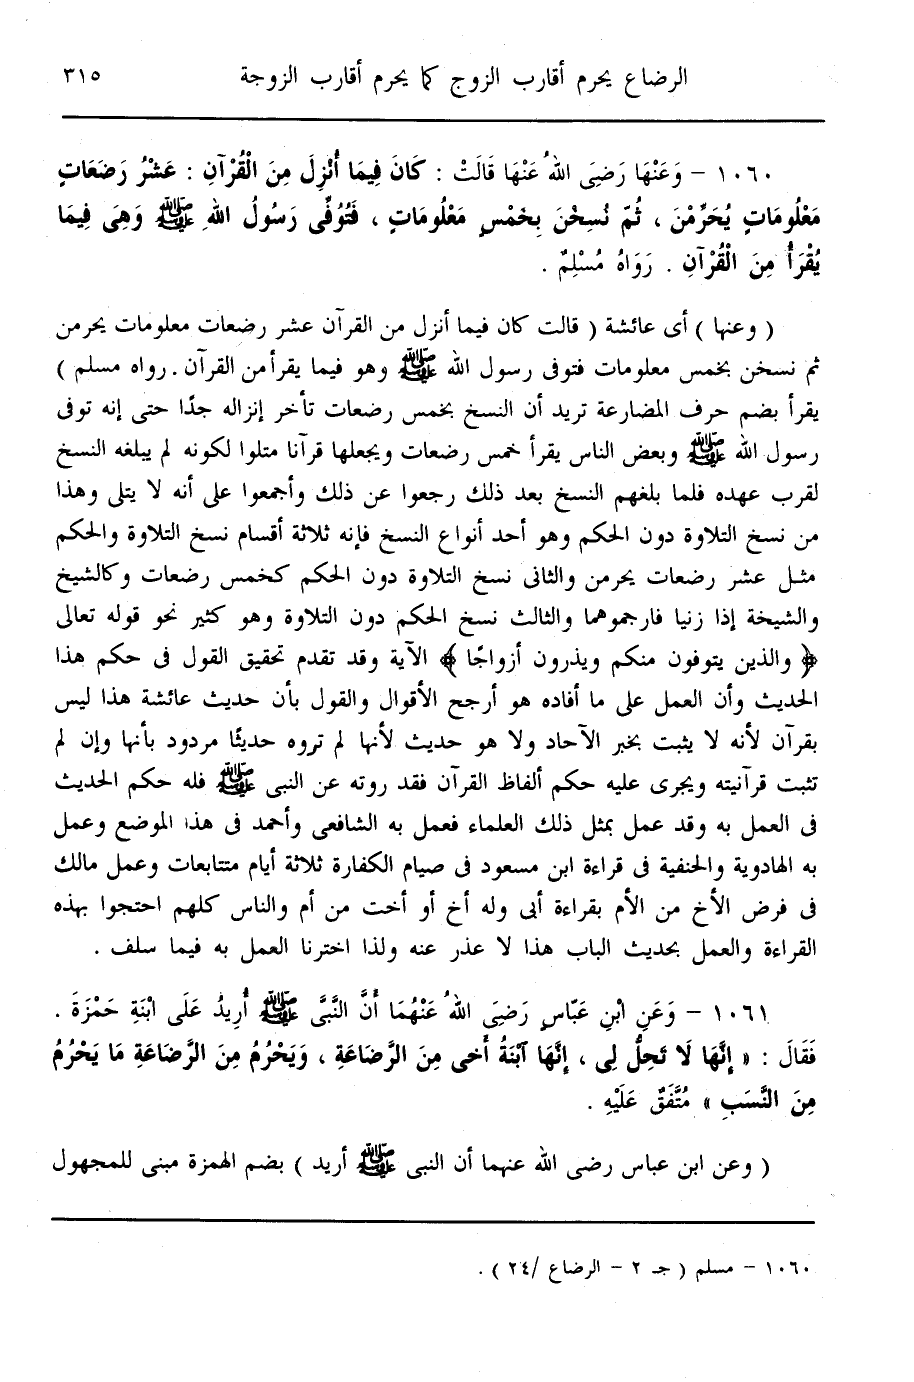 الرضاع يحرم أقارب الزوج كما يحرم أقارب الزوجة ٣١٥
١٠٦٠ – وَعَنْهَا رَضِىَ اللهُ عَنْهَا قَالَتْ : كَانَ فِيمَا أُنْزِلَ مِنَ الْقُرْآنِ : عَشْرُ رَضَعَاتٍ
مَعْلُومَاتٍ يُحَرِّمْنَ ، ثُمّ نُسِخْنَ بِخَمْسٍ مَعْلُومَاتٍ ، فَتُوُفِّى رَسُولُ اللهِ ﷺ وَهِىَ فِيمَا
يُقْرَأُ مِنَ الْقُرْآنِ . رَوَاهُ مُسْلِمٌ .
( وعنها ) أى عائشة ( قالت كان فيما أنزل من القرآن عشر رضعات معلومات يحرمن
ثم نسخن بخمس معلومات فتوفى رسول الله ﷺ وهو فيما يقرأ من القرآن . رواه مسلم )
يقرأ بضم حرف المضارعة تريد أن النسخ بخمس رضعات تأخر إنزاله جدًا حتى إنه توفى
رسول الله ﷺ وبعض الناس يقرأ خمس رضعات ويجعلها قرآنا متلوا لكونه لم يبلغه النسخ
لقرب عهده فلما بلغهم النسخ بعد ذلك رجعوا عن ذلك وأجمعوا على أنه لا يتلى وهذا
من نسخ التلاوة دون الحكم وهو أحد أنواع النسخ فإنه ثلاثة أقسام نسخ التلاوة والحكم
مثل عشر رضعات يحرمن والثانى نسخ التلاوة دون الحكم كخمس رضعات وكالشيخ
والشيخة إذا زنيا فارجموهما والثالث نسخ الحكم دون التلاوة وهو كثير نحو قوله تعالى
﴿ والذين يتوفون منكم ويذرون أزواجًا ﴾ الآية وقد تقدم تحقيق القول فى حكم هذا
الحديث وأن العمل على ما أفاده هو أرجح الأقوال والقول بأن حديث عائشة هذا ليس
بقرآن لأنه لا يثبت بخبر الآحاد ولا هو حديث لأنها لم تروه حديثًا مردود بأنها وإن لم
تثبت قرآنيته ويجرى عليه حكم ألفاظ القرآن فقد روته عن النبى ﷺ فله حكم الحديث
فى العمل به وقد عمل بمثل ذلك العلماء فعمل به الشافعى وأحمد فى هذا الموضع وعمل
به الهادوية والحنفية فى قراءة ابن مسعود فى صيام الكفارة ثلاثة أيام متتابعات وعمل مالك
فى فرض الأخ من الأم بقراءة أبى وله أخ أو أخت من أم والناس كلهم احتجوا بهذه
القراءة والعمل بحديث الباب هذا لا عذر عنه ولذا اخترنا العمل به فيما سلف .
١٠٦١ – وَعَنِ ابْنِ عَبّاسٍ رَضِىَ اللهُ عَنْهُمَا أَنَّ النَّبَّى ﷺ أُرِيدُ عَلَى ابْنَةِ حَمْزَةَ .
فَقَالَ : « إِنَّهَا لَا تَحِلُّ لِى ، إِنَّهَا ابْنَةُ أَخى مِنَ الرَّضَاعَةِ ، وَيَحْرُمُ مِنَ الرَّضَاعَةِ مَا يَحْرُمُ
مِنَ النَّسَبِ » مُتَّفَقٌ عَلَيْهِ .
( وعن ابن عباس رضى الله عنهما أن النبى ﷺ أريد ) بضم الهمزة مبنى للمجهول
١٠٦٠ – مسلم ( جـ ٢ – الرضاع /٢٤ ) .